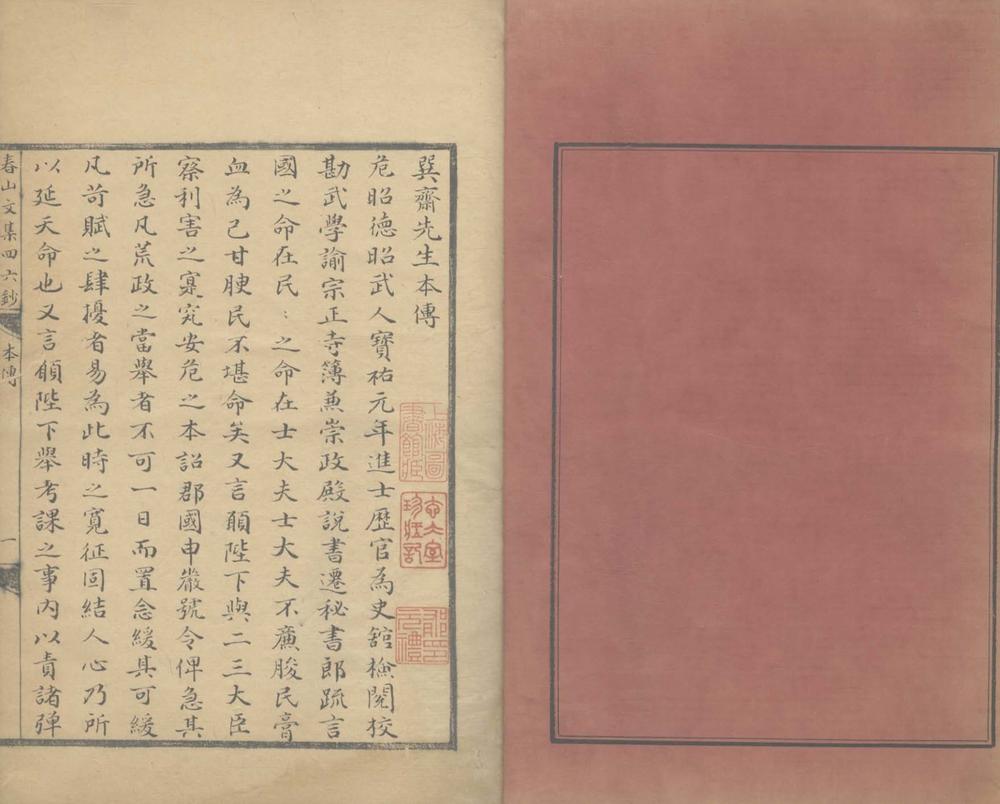 巽齋先生本傳
危昭德昭武人寶祐元年進士歷官為史館檢閱校
勘武學諭宗正寺簿兼崇政殿說書遷秘書郎疏言
國之命在民〻之命在士大夫士大夫不廉朘民膏
血為己甘腴民不堪命矣又言願陛下與二三大臣
察利害之寔究安危之本詔郡國申嚴號令俾急其
所急凡荒政之當舉者不可一日而置念緩其可緩
凡苛賦之肆擾者易為此時之寬征固結人心乃所
以延天命也又言願陛下舉考課之事內以責諸弹
春山文集四六鈔
本傳
一
上海圖書館藏